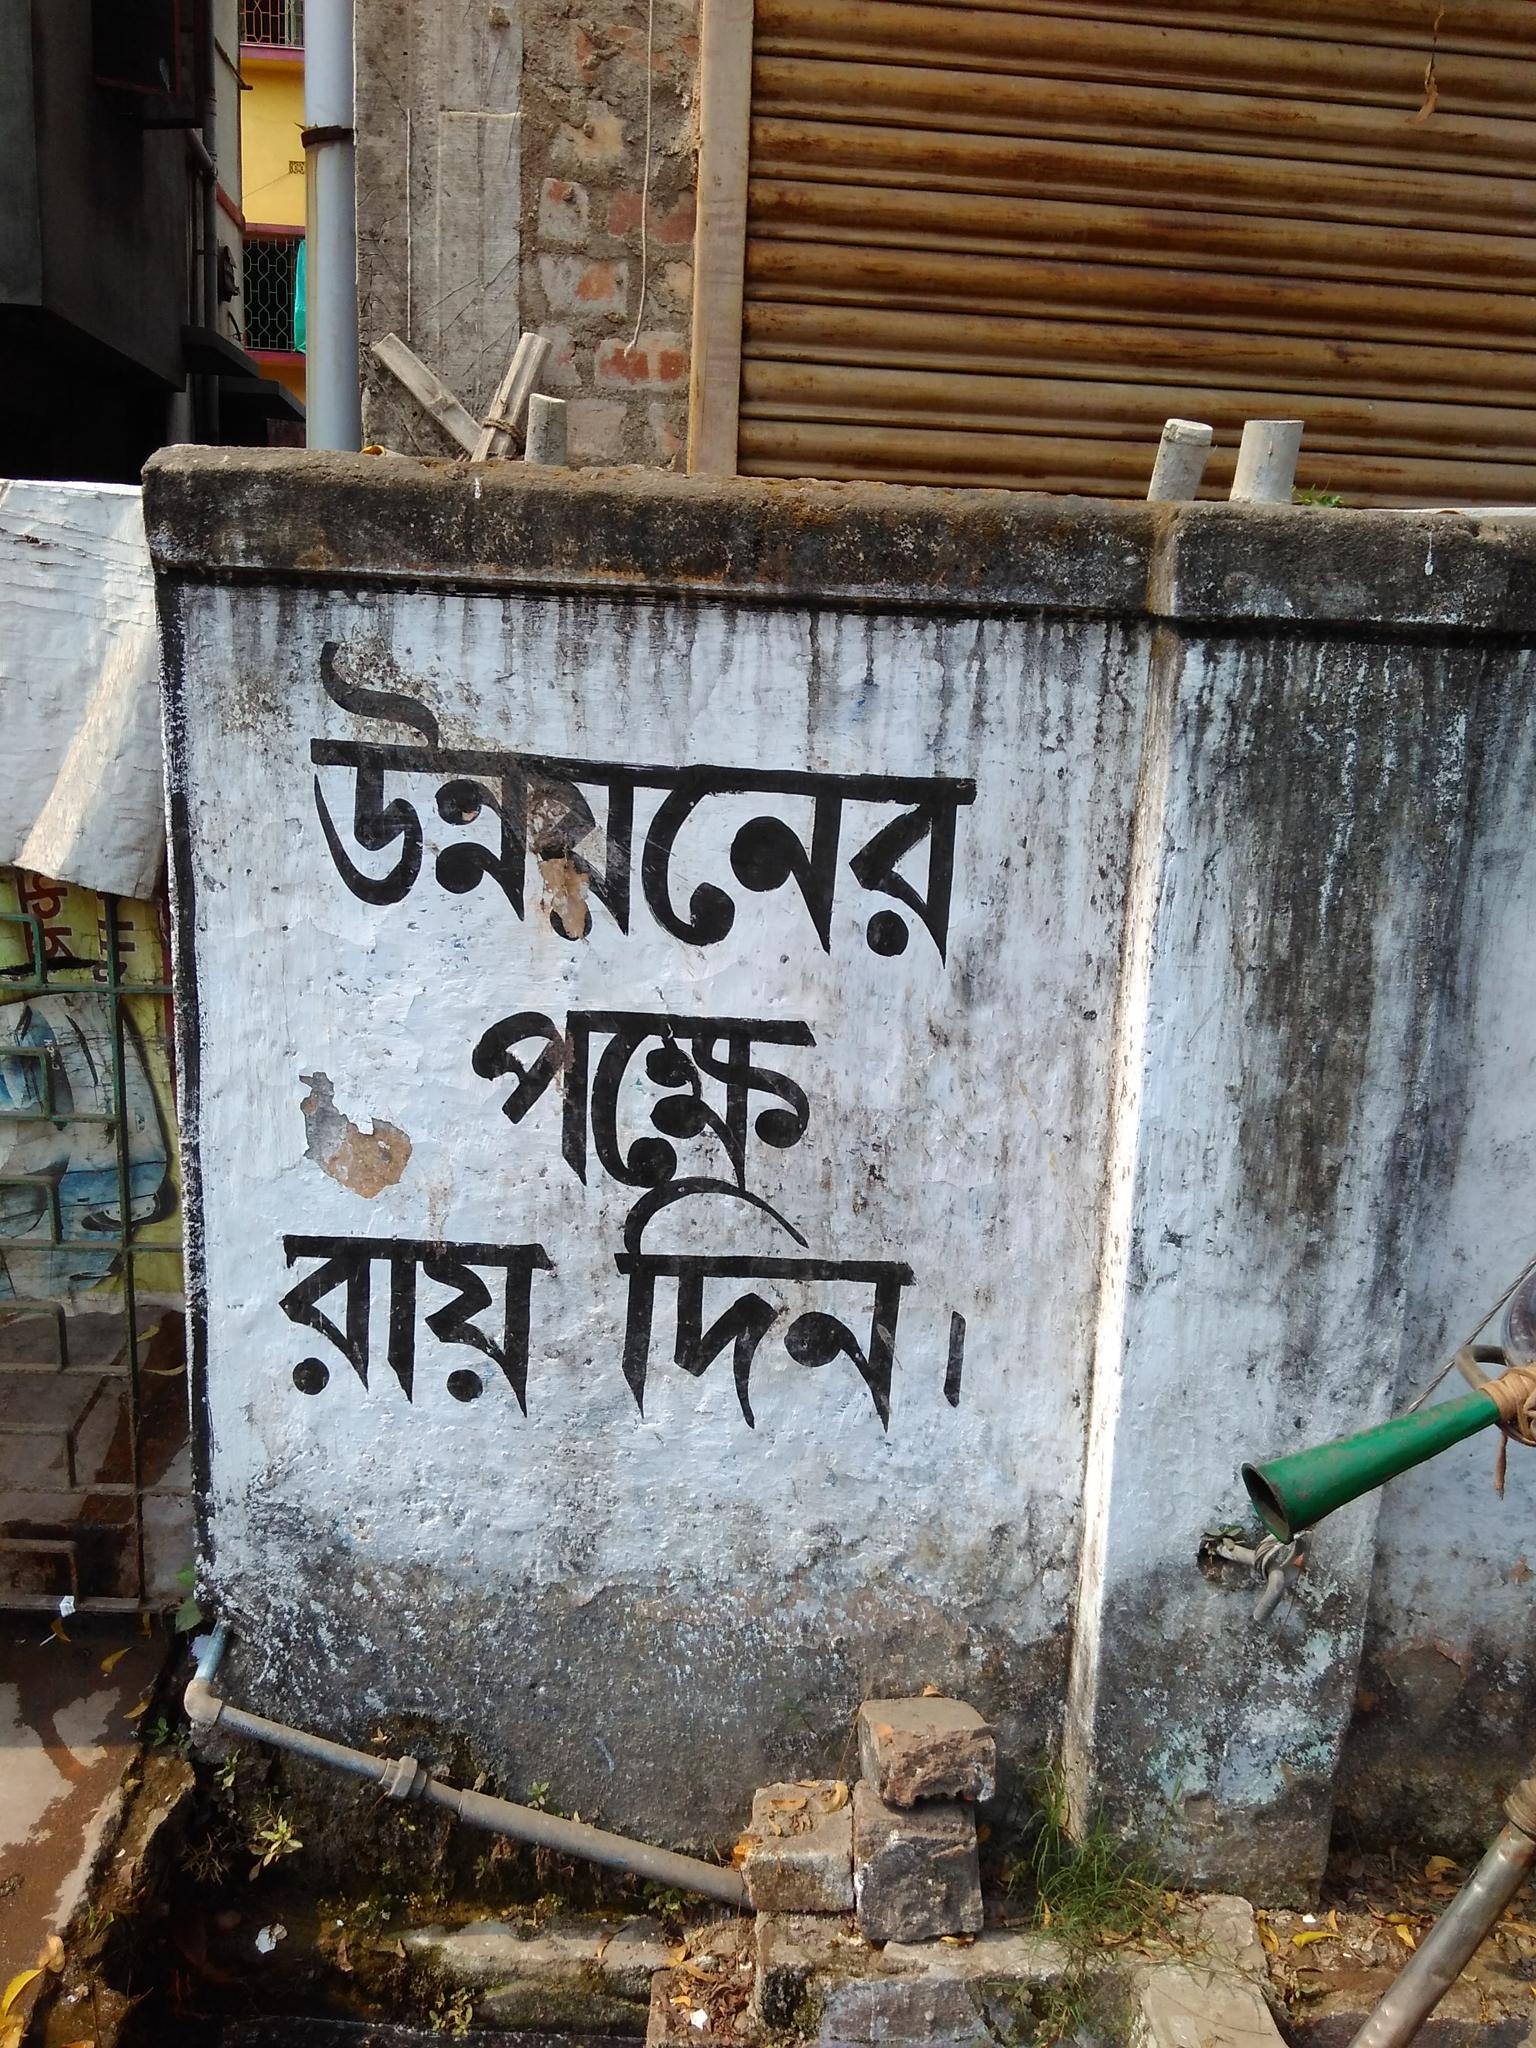 উন্নয়নের
পক্ষে
রায় দিন।